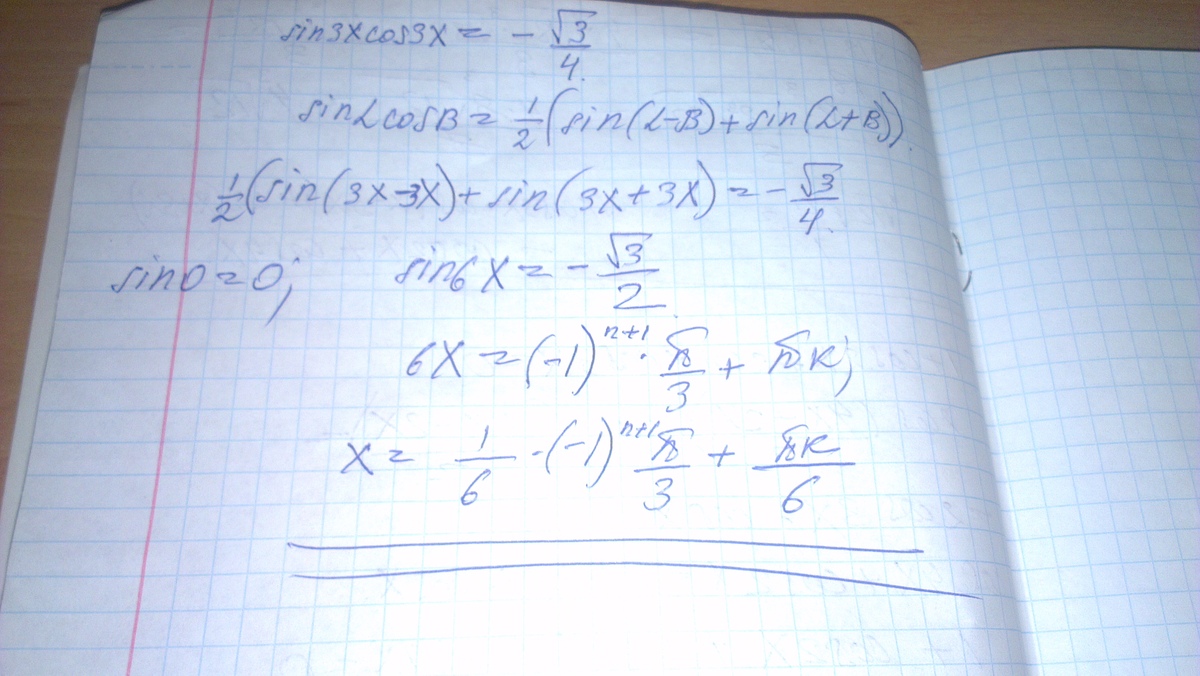 sin3xcos3x = - √3/4.
sinαcosB = 1/2 (sin(α-B) + sin(α+B)).
1/2 (sin(3x-3x) + sin(3x+3x) = - √3/4.
sin0 = 0; sin6x = - √3/2.
6x = (-1)^(n+1) · π/3 + πк;
x = 1/6 · (-1)^(n+1) π/3 + πк/6